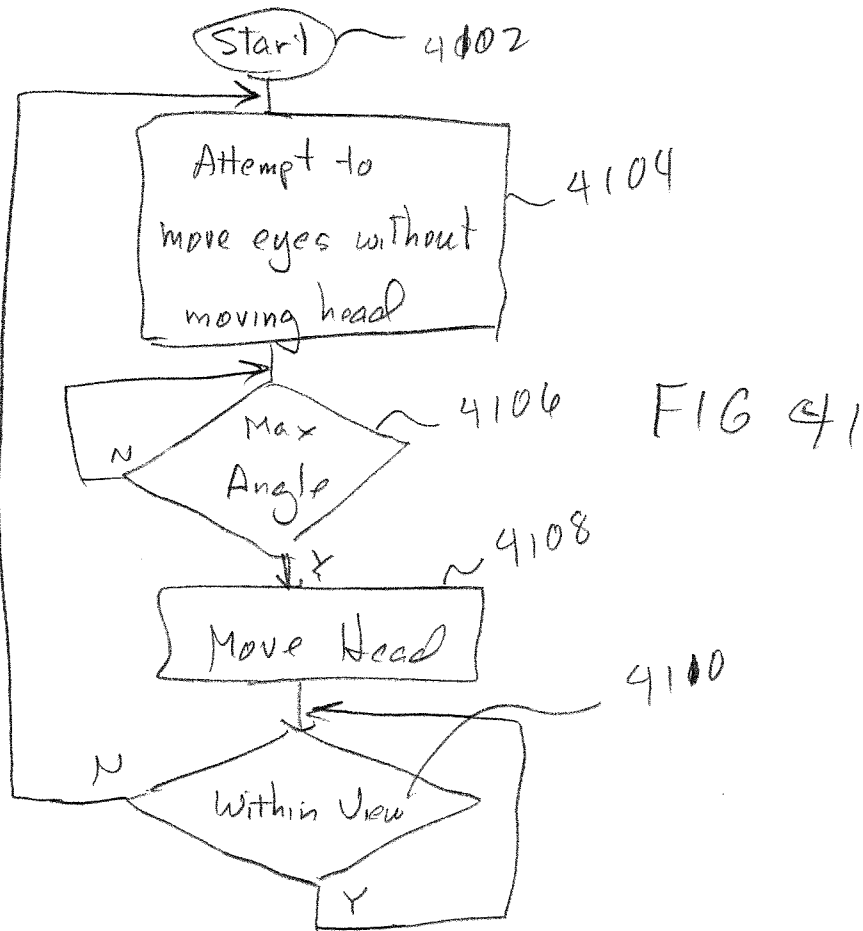 Start
4102
Attempt to
move eyes without
moving head
4104
N
Max
Angle
4106
FIG 41
Y
4108
Move Head
4110
N
Within View
Y